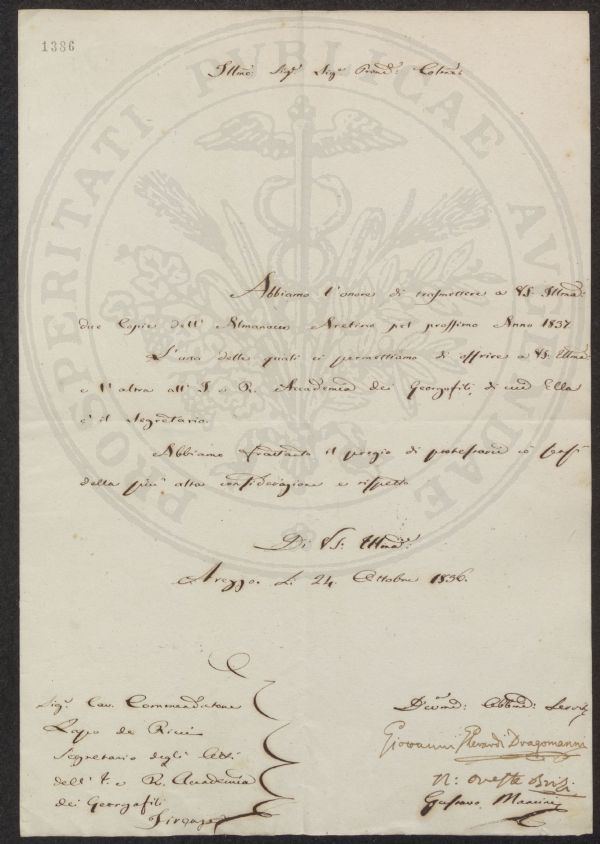 1386
Illmo: Sigr Sigr Proned: Colmo:
Abbiamo l'onore di trasmettere a VS. Illma:
due Copie dell' Almanacco Aretino pel prossimo Anno 1837.
L'una delle quali ci permettiamo di offrire a VS. Illma:
e l'altra all' I. e R. Accademia dei Georgofili, di cui Ella
è il Segretario.
Abbiamo frattanto il pregio di protestarci co' sensi
della più alta considerazione e rispetto
Di VS: Illma:
Arezzo. Li 24. Ottobre 1836.
Sigr Cav. Commendatore
Lapo de Ricci
Segretario degli Atti
dell' I. e R. Accademia
dei Georgofili
Firenze
Devmi: Obbmi: Servi
Giovanni Gherardi Dragomanni
Oreste Brizi
Gustavo Mancini
PROSPERITATI PUBLICAE AUGENDAE